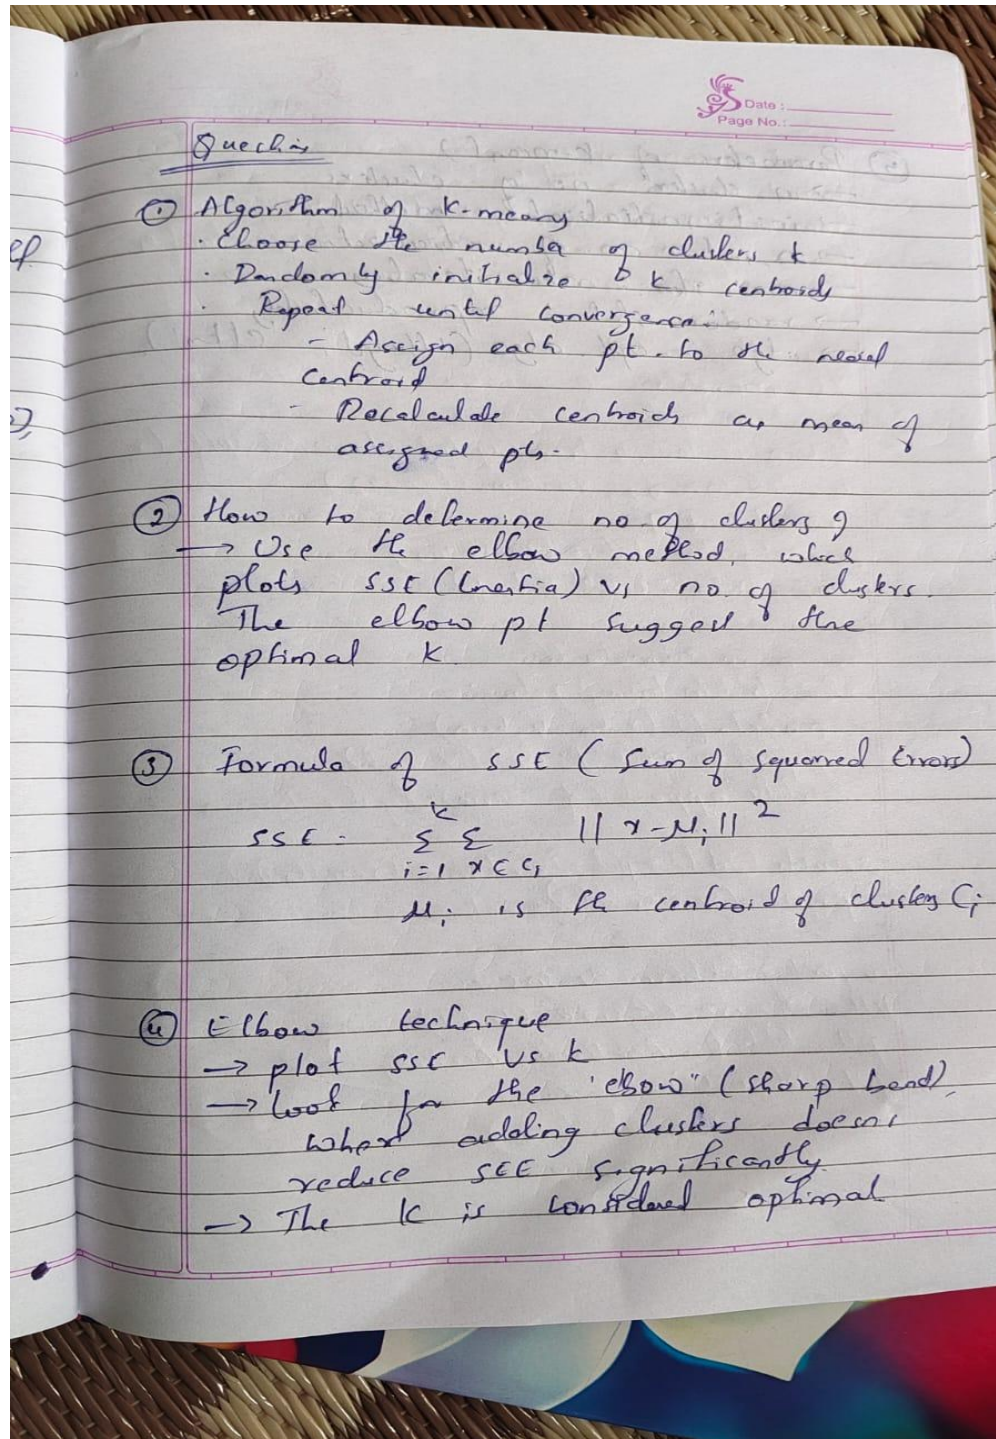 Date :
Page No.:
Questions
① Algorithm of K-means
· Choose the number of clusters k
· Randomly initialize K centroids
· Repeat until convergence:
- Assign each pt. to the nearest
centroid
- Recalculate centroids as mean of
assigned pts.
② How to determine no. of clusters ?
→ Use the elbow method, which
plots SSE (Inertia) vs no. of clusters.
The elbow pt suggest the
optimal K
③ Formula of SSE ( Sum of squared Errors)
k
SSE = Σ Σ || x-μi || 2
i=1 x∈Ci
μi is the centroid of clusters Ci
④ Elbow technique
→ plot SSE vs k
→ look for the "elbow" (sharp bend),
where adding clusters doesn't
reduce SEE significantly
→ The K is considered optimal
ep